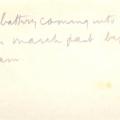 battery coming into
march past b
am.